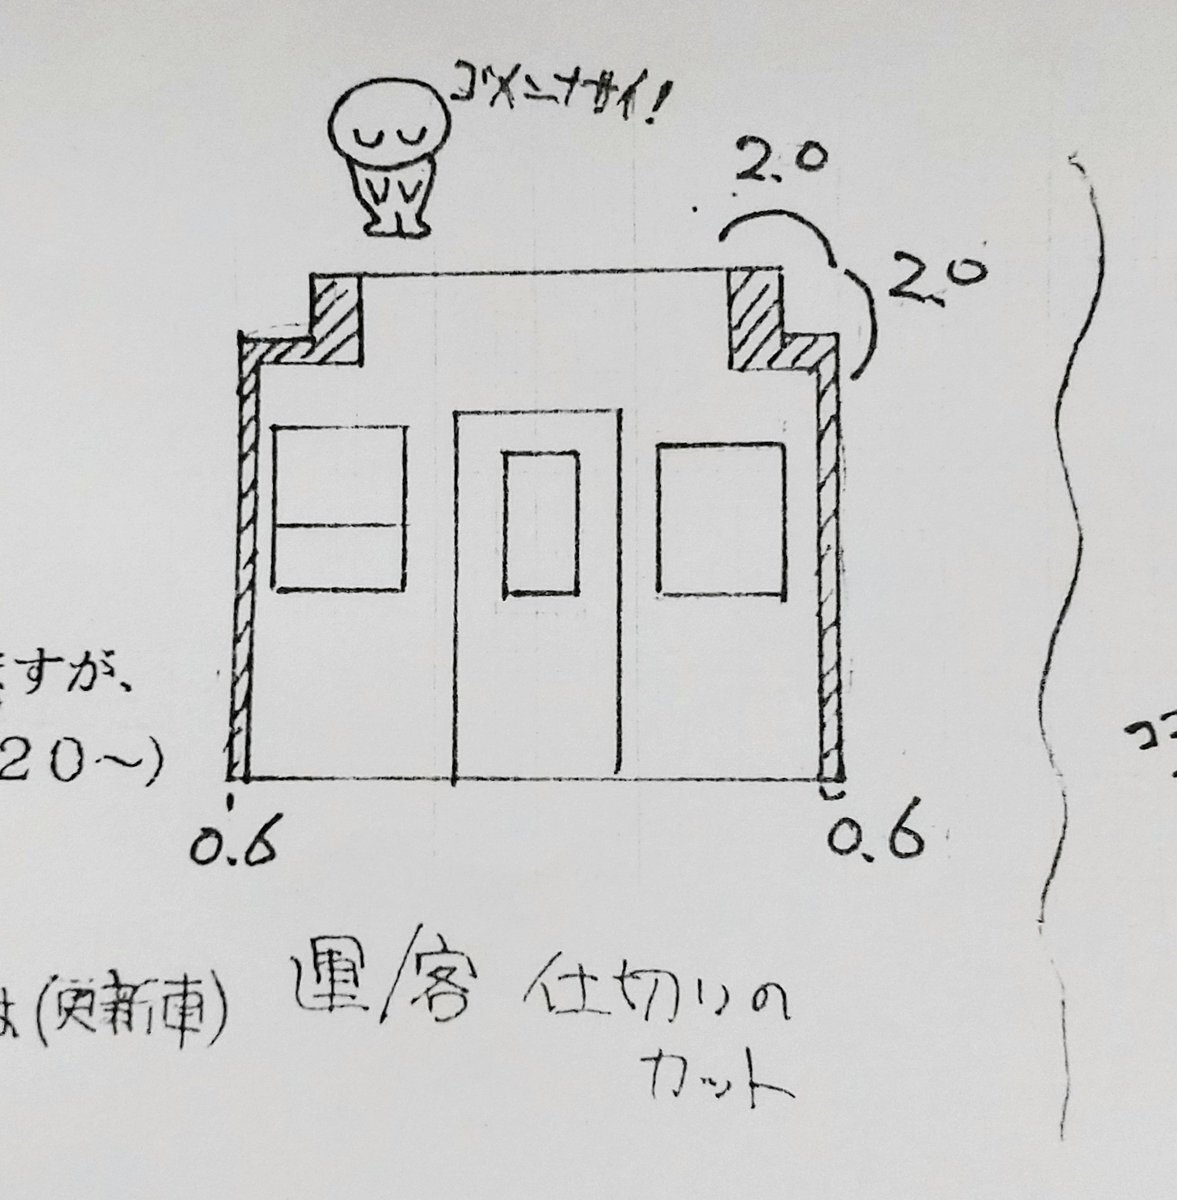 ゴメンナサイ!
2.0
2.0
すが、
20～)
0.6
0.6
は(更新車)
運/客 仕切りの
カット